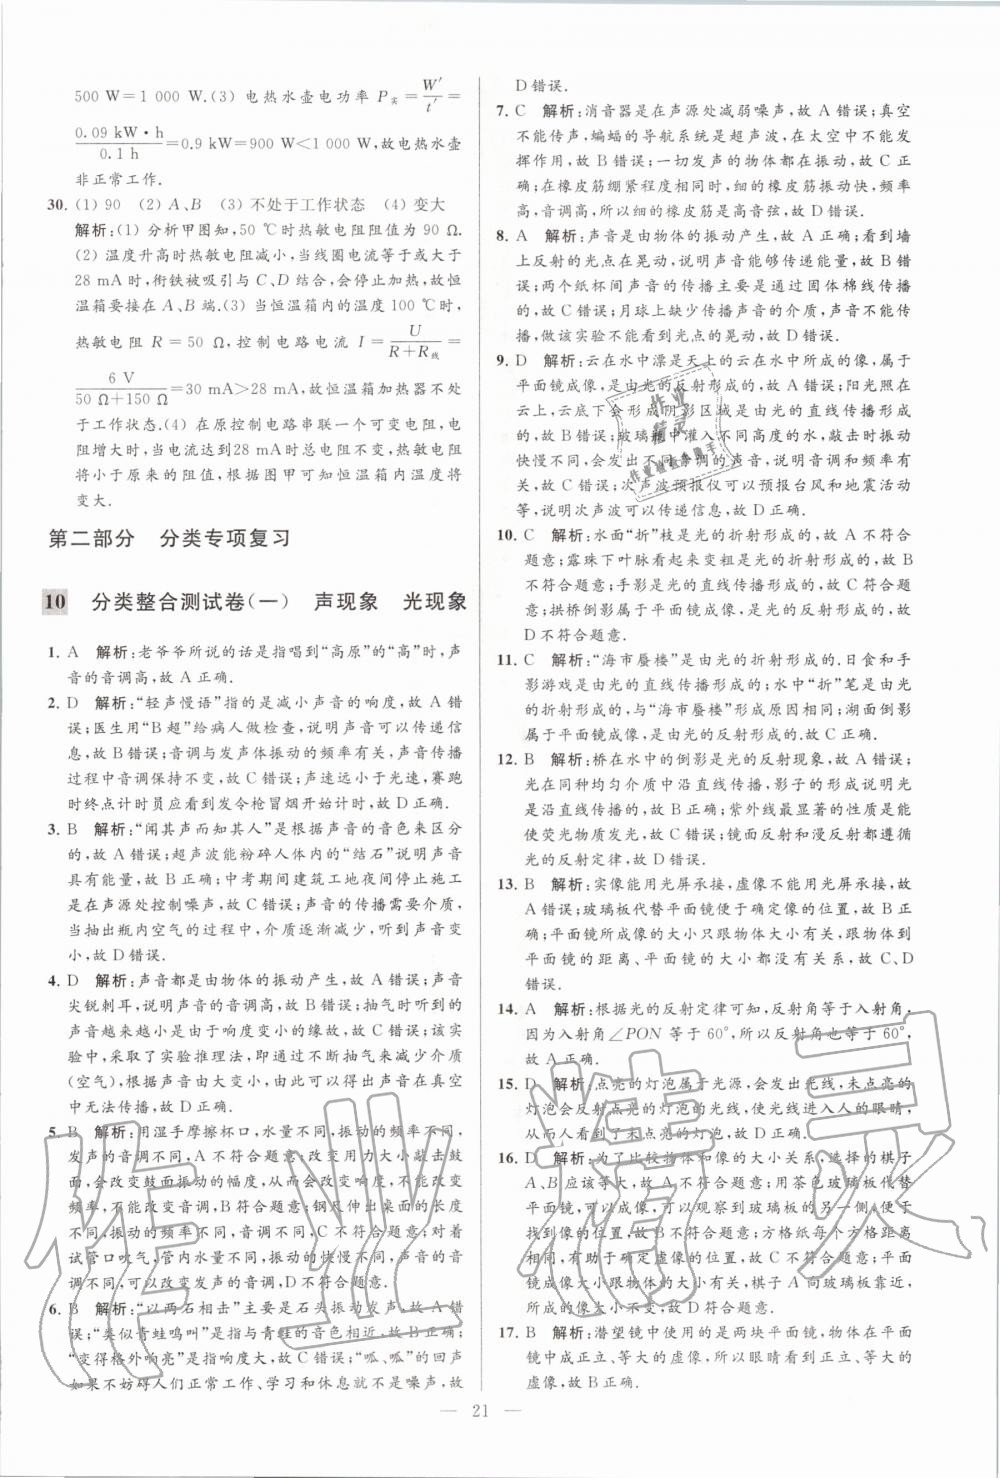 500 W=1 000 W.(3) 电热水壶电功率 P实=W′/t′=
0.09 kW·h/0.1 h=0.9 kW=900 W<1 000 W,故电热水壶
非正常工作.
30. (1) 90 (2) A、B (3) 不处于工作状态 (4) 变大
解析:(1) 分析甲图知,50 ℃时热敏电阻阻值为 90 Ω.
(2) 温度升高时热敏电阻减小,当线圈电流等于或大于
28 mA时,衔铁被吸引与 C、D 结合,会停止加热,故恒
温箱要接在 A、B 端.(3) 当恒温箱内的温度 100 ℃时,
热敏电阻 R=50 Ω,控制电路电流 I=U/(R+R线)=
6 V/(50 Ω+150 Ω)=30 mA>28 mA,故恒温箱加热器不处
于工作状态.(4) 在原控制电路串联一个可变电阻,电
电阻增大,当电流达到28 mA时总电阻不变,热敏电阻
将小于原来的阻值,根据图甲可知恒温箱内温度将
变大.
第二部分 分类专项复习
10 分类整合测试卷(一) 声现象 光现象
1. A 解析:老爷爷所说的话是指唱到“高原”的“高”时,声
音的音调高,故 A 正确.
2. D 解析:“轻声慢语”指的是减小声音的响度,故 A 错
误;医生用“B超”给病人做检查,说明声音可以传递信
息,故 B 错误;音调与发声体振动的频率有关,声音传播
过程中音调保持不变,故 C 错误;声速远小于光速,赛跑
时终点计时员应看到发令枪冒烟开始计时,故 D 正确.
3. B 解析:“闻其声而知其人”是根据声音的音色来区分
的,故 A 错误;超声波能粉碎人体内的“结石”说明声音
具有能量,故 B 正确;中考期间建筑工地夜间停止施工
是在声源处控制噪声,故 C 错误;声音的传播需要介质,
当抽出瓶内空气的过程中,介质逐渐减少,听到声音变
小,故 D 错误.
4. D 解析:声音都是由物体的振动产生,故 A 错误;声音
尖锐刺耳,说明声音的音调高,故 B 错误;抽气时听到的
声音越来越小是由于响度变小的缘故,故 C 错误;该实
验中,采取了实验推理法,即通过不断抽气来减少介质
(空气),根据声音由大变小,由此可以得出声音在真空
中无法传播,故 D 正确.
5. B 解析:用湿手摩擦杯口,水量不同,振动的频率不同,
发声的音调不同,A 不符合题意;改变用力大小敲击鼓
面,会改变鼓面振动的幅度,从而会改变响度,不能改变
频率,不能改变音调,B 符合题意;钢尺伸出桌面的长度
不同,振动的频率不同,音调不同,C 不符合题意;对着
试管口吹气,管内水量不同,振动的快慢不同,声音的音
调不同,可以改变发声的音调,D 不符合题意.
6. B 解析:“以两石相击”主要是石头振动发声,故 A 错
误;“类似青蛙鸣叫”是指与青蛙的音色相近,故 B 正确;
“变得格外响亮”是指响度大,故 C 错误;“呱、呱”的回声
如果不妨碍人们正常工作、学习和休息就不是噪声,故
D 错误.
7. C 解析:消音器是在声源处减弱噪声,故 A 错误;真空
不能传声,蝙蝠的导航系统是超声波,在太空中不能发
挥作用,故 B 错误;一切发声的物体都在振动,故 C 正
确;在橡皮筋绷紧程度相同时,细的橡皮筋振动快,频率
高,音调高,所以细的橡皮筋是高音弦,故 D 错误.
8. A 解析:声音是由物体的振动产生,故 A 正确;看到墙
上反射的光点在晃动,说明声音能够传递能量,故 B 错
误;两个纸杯间声音的传播主要是通过固体棉线传播
的,故 C 错误;月球上缺少传播声音的介质,声音不能传
播,做该实验不能看到光点的晃动,故 D 错误.
9. D 解析:云在水中漂是天上的云在水中所成的像,属于
平面镜成像,是由光的反射形成的,故 A 错误;阳光照在
云上,云底下会形成阴影区域是由光的直线传播形成
的,故 B 错误;玻璃瓶中灌入不同高度的水,敲击时振动
快慢不同,会发出不同音调的声音,说明音调与频率有
关,故 C 错误;次声波预报仪可以预报台风和地震活动
等,说明次声波可以传递信息,故 D 正确.
10. C 解析:水面“折”枝是光的折射形成的,故 A 不符合
题意;露珠下叶脉看起来变粗是光的折射形成的,故 B
不符合题意;手影是光的直线传播形成的,故 C 符合题
意;拱桥倒影属于平面镜成像,是光的反射形成的,故
D 不符合题意.
11. C 解析:“海市蜃楼”是由光的折射形成的.日食和手
影游戏是由光的直线传播形成的;水中“折”笔是由光
的折射形成的,与“海市蜃楼”形成原因相同;湖面倒影
属于平面镜成像,是由光的反射形成的.故 C 正确.
12. B 解析:桥在水中的倒影是光的反射现象,故 A 错误;
光在同种均匀介质中沿直线传播,影子的形成说明光
是沿直线传播的,故 B 正确;紫外线最显著的性质是能
使荧光物质发光,故 C 错误;镜面反射和漫反射都遵循
光的反射定律,故 D 错误.
13. B 解析:实像能用光屏承接,虚像不能用光屏承接,故
A 错误;玻璃板代替平面镜便于确定像的位置,故 B 正
确;平面镜所成像的大小只跟物体大小有关,跟物体到
平面镜的距离、平面镜的大小都没有关系,故 C、D
错误.
14. A 解析:根据光的反射定律可知,反射角等于入射角,
因为入射角∠PON 等于 60°,所以反射角也等于 60°,
故 A 正确.
15. D 解析:点亮的灯泡属于光源,会发出光线,未点亮的
灯泡会反射点亮的灯泡的光线,使光线进入人的眼睛,
从而人看到了未点亮的灯泡,故 D 正确.
16. D 解析:为了比较物体和像的大小关系,选择的棋子
A、B 应该等大,故 A 不符合题意;用茶色玻璃板代替平
面镜成像,成像的同时,也可以观察到玻璃板的另一侧,便于
找到像的位置,故 B 不符合题意;方格纸每个方格距离
相同,有助于确定虚像的位置,故 C 不符合题意;平面
镜成像大小跟物体的大小有关,棋子 A 向玻璃板靠近,
所成的像大小不变,故 D 符合题意.
17. B 解析:潜望镜中使用的是两块平面镜,物体在平面
镜中成正立、等大的虚像,所以眼睛看到的是正立、等大
的虚像,故 B 正确.
— 21 —
作业精灵